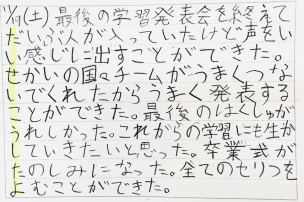 11/19(土)最後の学習発表会を終えて
だいぶ人が入っていたけど声をい
い感じに出すことができた。
せかいの国々チームがうまくつな
いでくれたからうまく発表する
ことができた。最後のはくしゅが
うれしかった。これからの学習にも生か
していきたいと思った。卒業式が
たのしみになった。全てのセリフを
よむことができた。